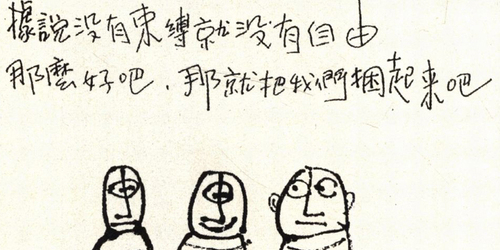 據說没有束縛就没有自由
那麼好吧．那就把我們捆起来吧